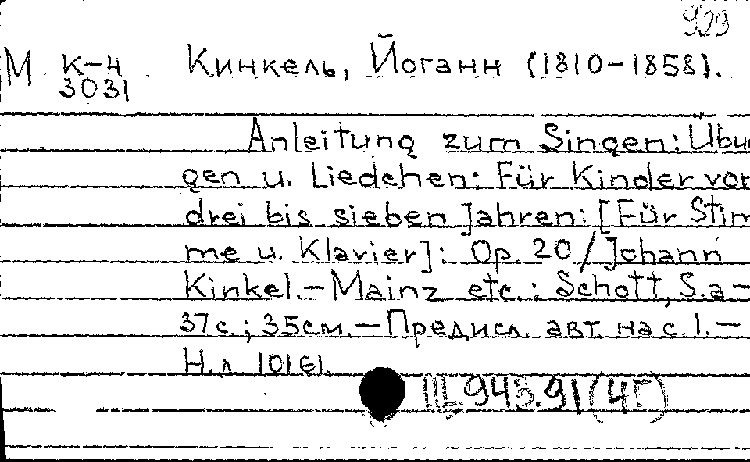 929
М К-4 Кинкель, Йоганн (1810-1858).
3031
Anleitung zum Singen: Übu
gen u. Liedchen: Für Kinder von
drei bis sieben Jahren: [Für Stim
me u. Klavier]: Op. 20 / Johann
Kinkel. – Mainz etc.: Schott, S.a –
37с.; 35см. – Предисл. авт. на с 1. –
Н.л 10161.
Ш 943.91(4Г)